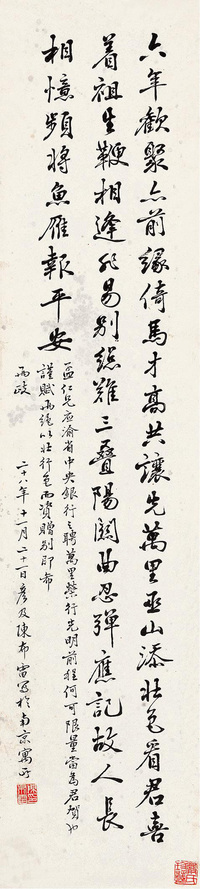 六年歡聚亦前緣倚馬才高共讓先萬里巫山添壯色看君喜
着祖生鞭相逢非易別縂難三疊陽關曲忍彈應記故人長
相憶頻將魚雁報平安
孟仁兄應渝省中央銀行之聘萬里榮行光明前程何可限量當為君賀也
謹賦兩絕以壯行色而資贈別即希
兩政
二八年十一月二十一日彥及陳布雷寫於南京寓所